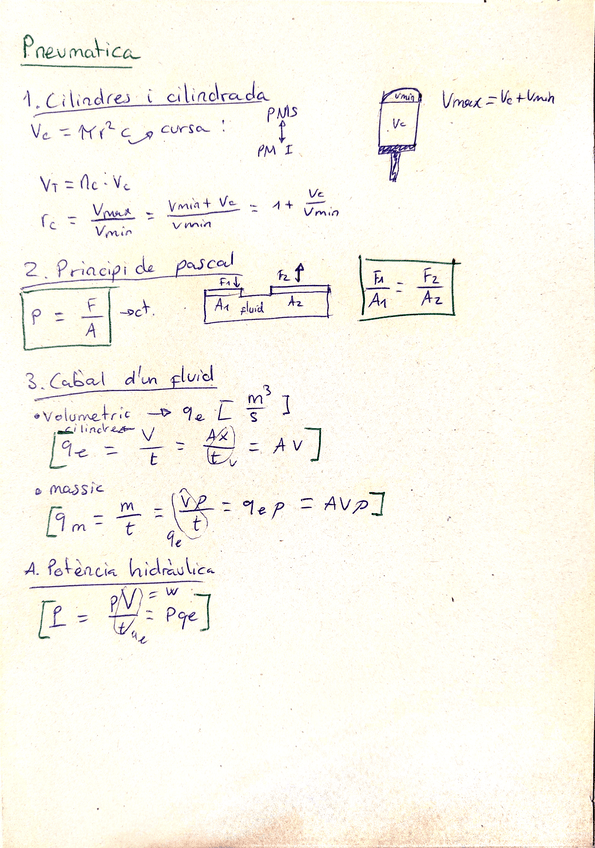 Pneumatica
1. Cilindres i cilindrada
Vc = πr²c → cursa !
PMS
PMI
Vmin
Vc
Vmax = Vc + Vmin
VT = nc · Vc
rc = Vmax / Vmin = Vmin + Vc / Vmin = 1 + Vc / Vmin
2. Principi de pascal
P = F / A → ct.
F1 ↓ F2 ↑
A1 fluid A2
F1 / A1 = F2 / A2
3. Cabal d'un fluid
• Volumetric → qe [ m³ / s ]
cilindre
[ qe = V / t = Ax / t = Av ]
v
• massic
[ qm = m / t = Vρ / t = qe ρ = AVρ ]
qe
4. Potència hidràulica
[ P = pV / t = Pqe ]
= W
qe